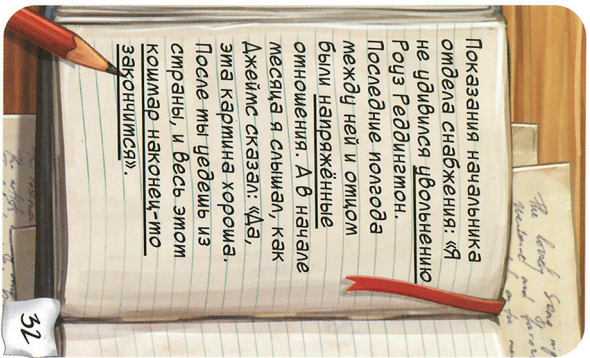 Показания начальника
отдела снабжения: «Я
не удивился увольнению
Роуз Реддингтон.
Последние полгода
между ней и отцом
были напряжённые
отношения. А в начале
месяца я слышал, как
Джеймс сказал: «Да,
эта картина хороша.
После ты уедешь из
страны, и весь этот
кошмар наконец-то
закончится».
32
The lovely
and